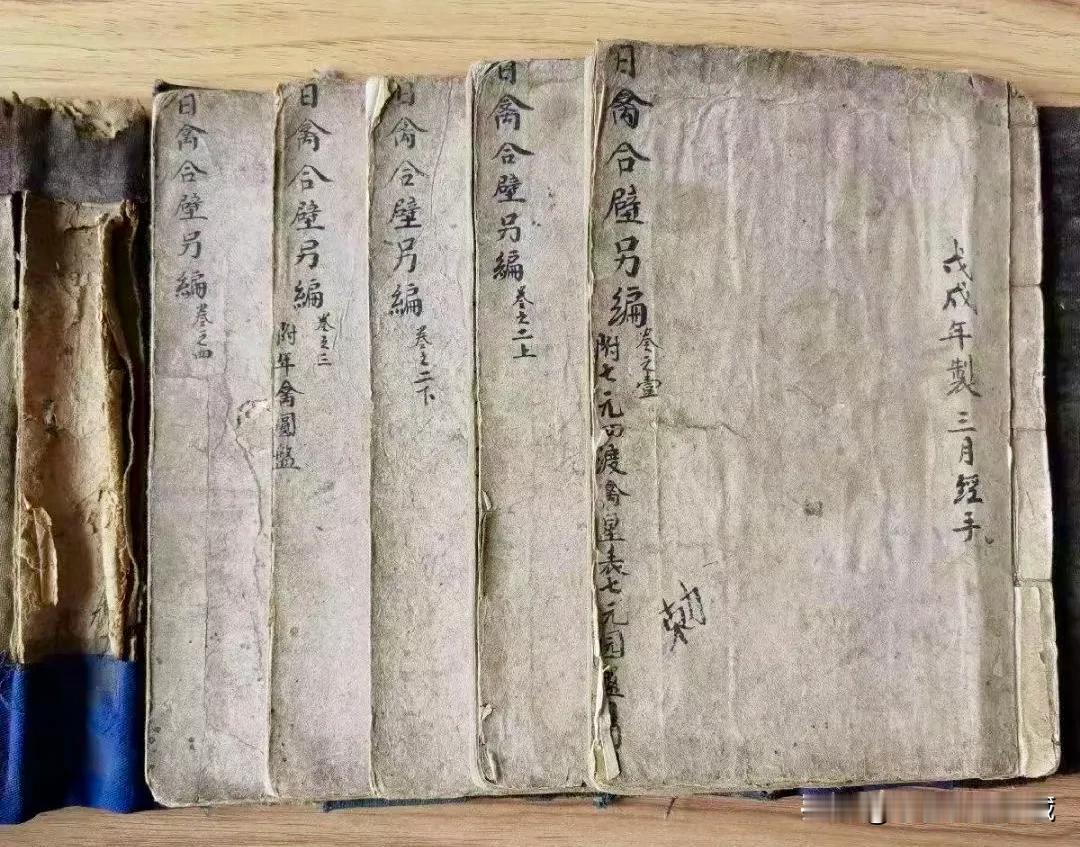 戊戌年製三月經手
日禽合璧另編
卷之壹
附七元四渡禽星表七元园盤
日禽合璧另編
卷之二上
日禽合璧另編
卷之二下
日禽合璧另編
卷之三
附年禽圓盤
日禽合璧另編
卷之四